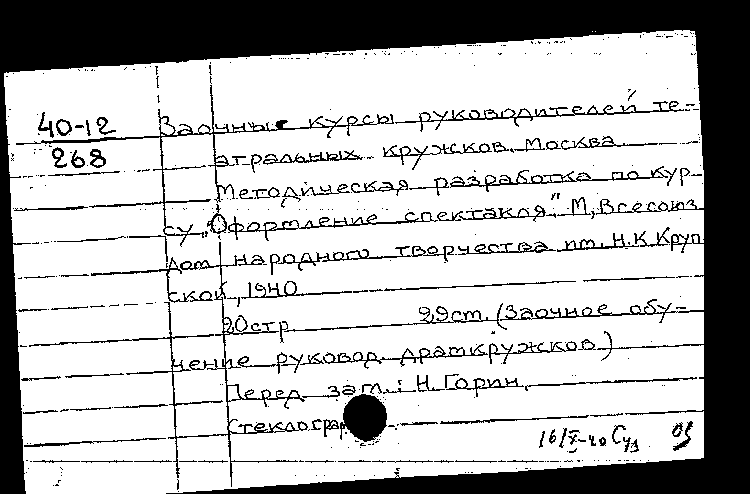 40-12
268
Заочные курсы руководителей те-
атральных кружков. Москва.
Методическая разработка по кур-
су „Оформление спектакля". М, Всесоюз
дом народного творчества им. Н.К. Круп
ской, 1940
20стр. 29см. (Заочное обу-
чение руковод. драмкружков.)
Перед загл.: Н. Горин.
Стеклограф.
16/X-40